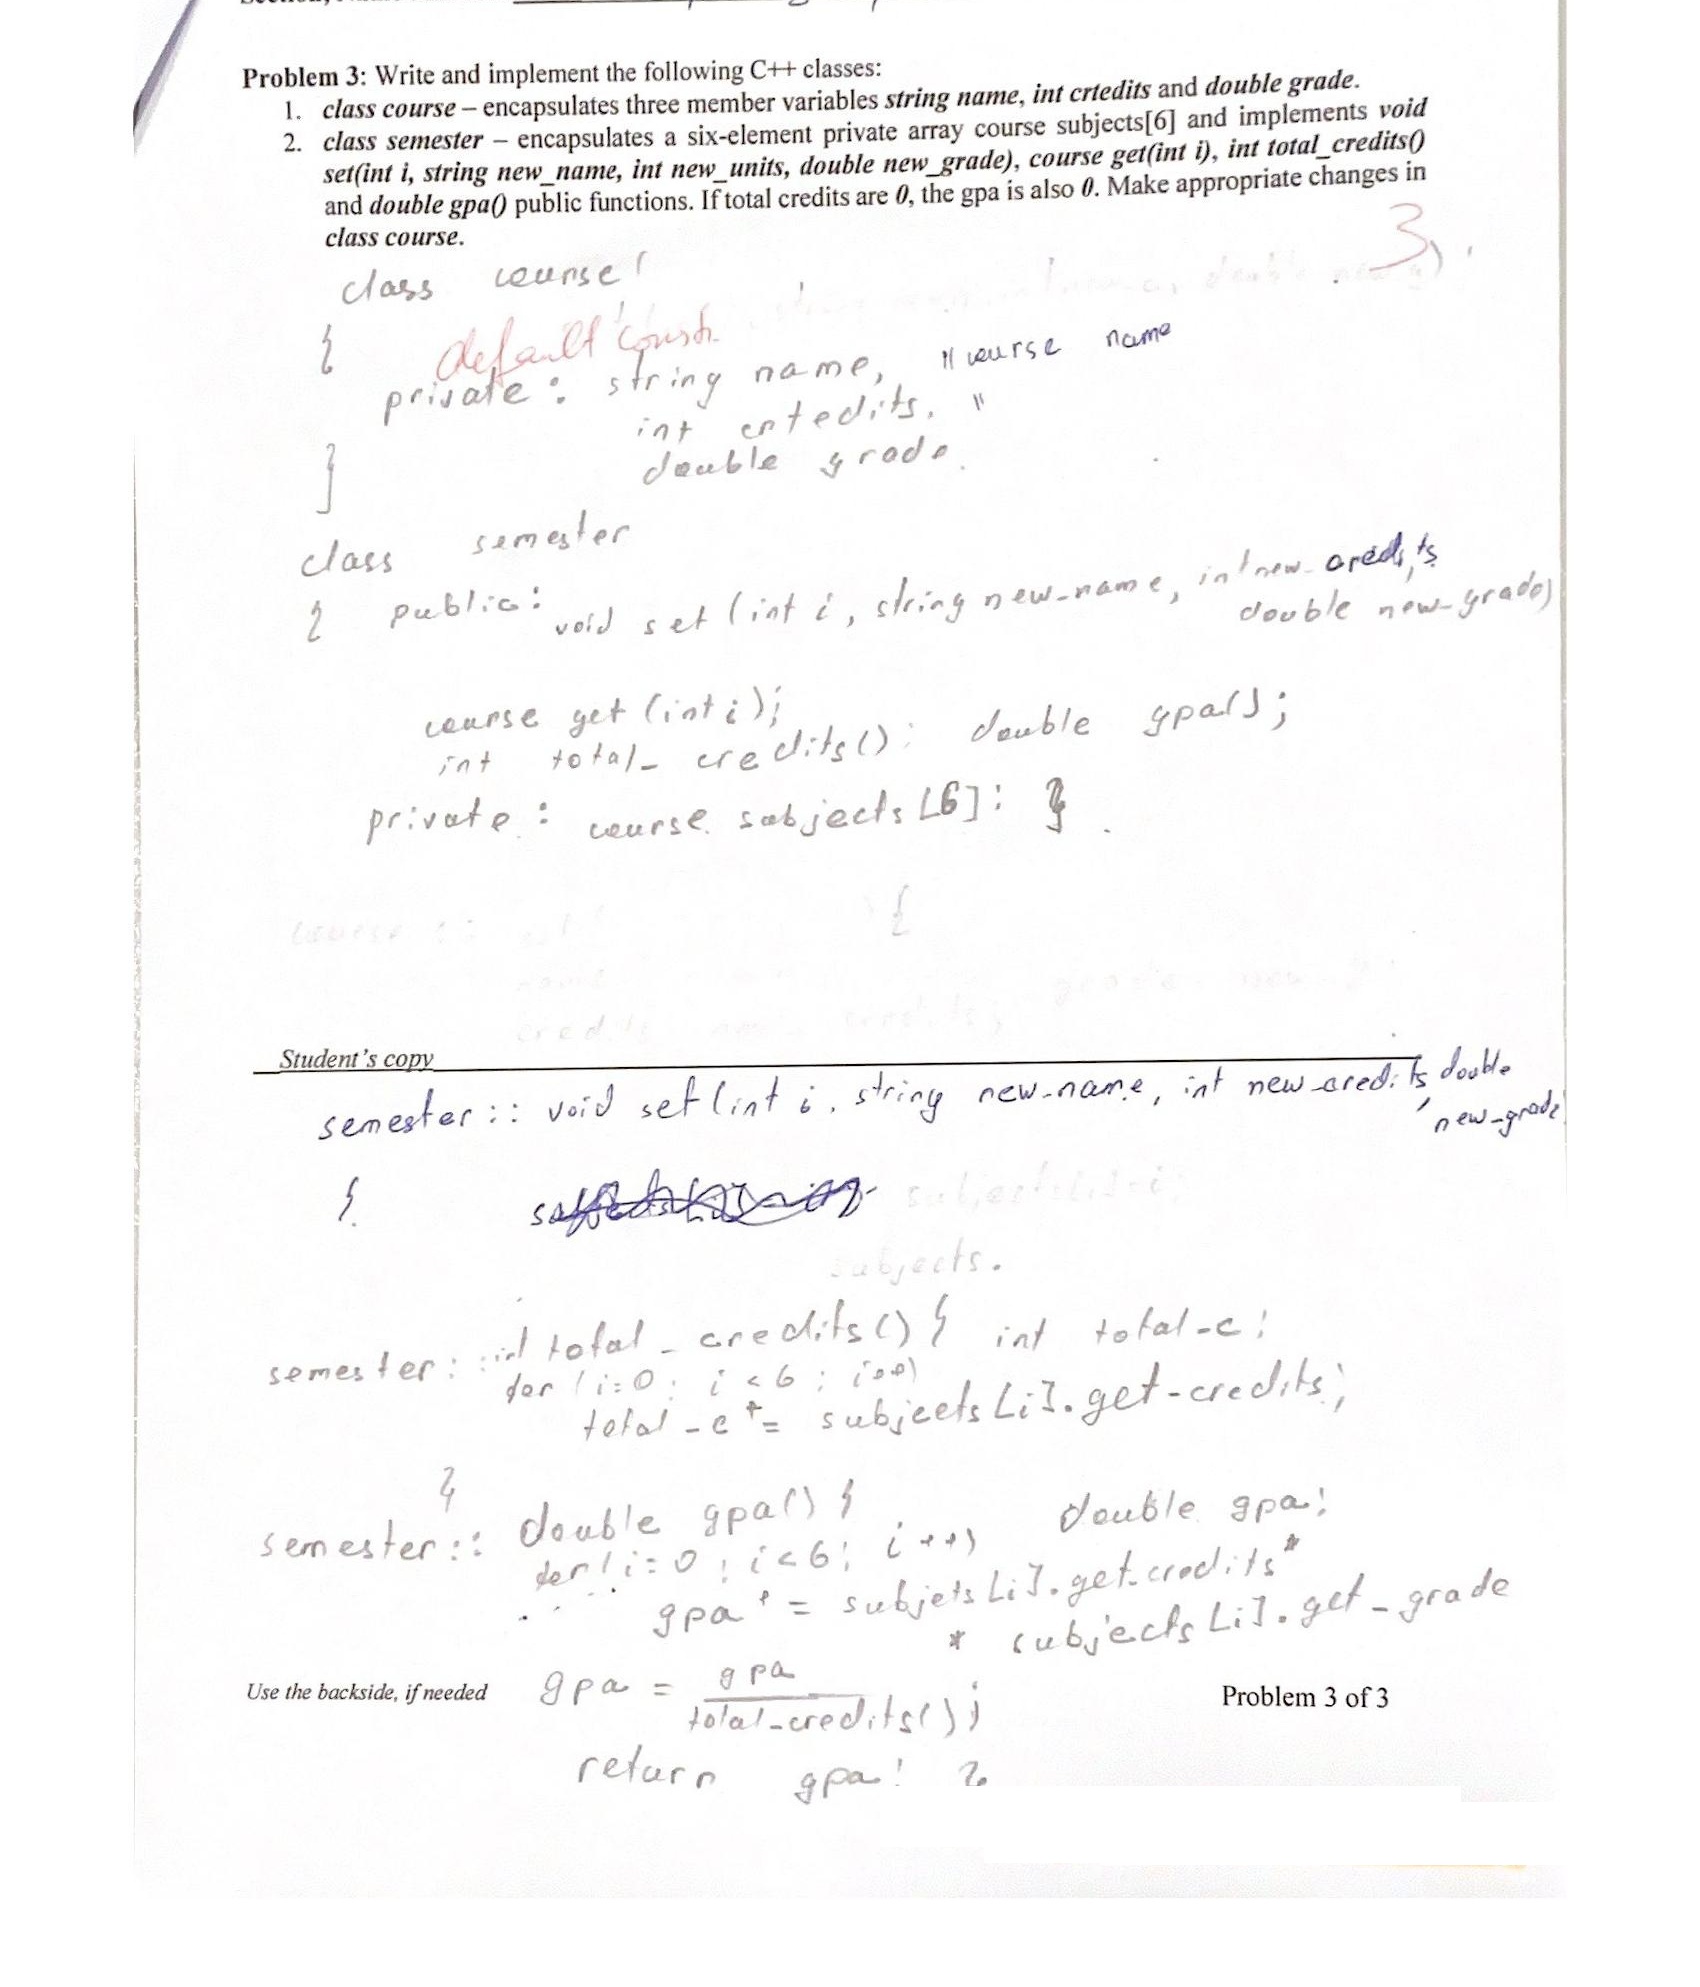 Problem 3: Write and implement the following C++ classes:
1. class course – encapsulates three member variables string name, int crtedits and double grade.
2. class semester – encapsulates a six-element private array course subjects[6] and implements void
set(int i, string new_name, int new_units, double new_grade), course get(int i), int total_credits()
and double gpa() public functions. If total credits are 0, the gpa is also 0. Make appropriate changes in
class course.
3
class course
{ default const.
private: string name, // course name
int crtedits. "
double grade.
}
class semester
{ public: void set (int i, string new-name, int new-credits,
double new-grade)
course get (int i);
int total_credits(): double gpa();
private: course subjects [6]: }
{
Student's copy
semester:: void set (int i, string new-name, int new-credits, double
new-grade
{
subjects.
semester:: int total_credits() { int total-c;
for (i=0; i<6; i++)
total-c += subjects [i].get-credits;
}
semester:: double gpa() { double gpa;
for (i=0; i<6; i++)
gpa += subjets [i].get-credits*
* subjects [i].get_grade
Use the backside, if needed
gpa = gpa
total-credits();
Problem 3 of 3
return gpa; }